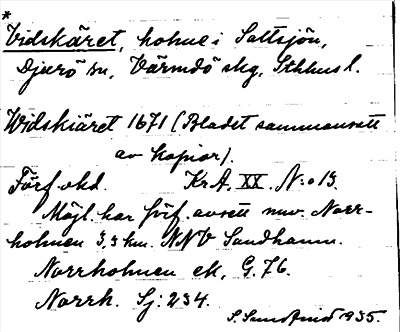 *
Vidskäret, holme i Saltsjön,
Djurö sn, Värmdö skg, Sthlms l.
Widskiäret 1671 (Bladet sammansatt
av kopior).
Förf. okd. KrA, XX, N:o 13.
Möjl. har förf. avsett nuv. Norr-
holmen 3,3 km. NNV Sandhamn.
Norrholmen ek, G. 76.
Norrh. Sj: 234.
S. Sundlind 1935.